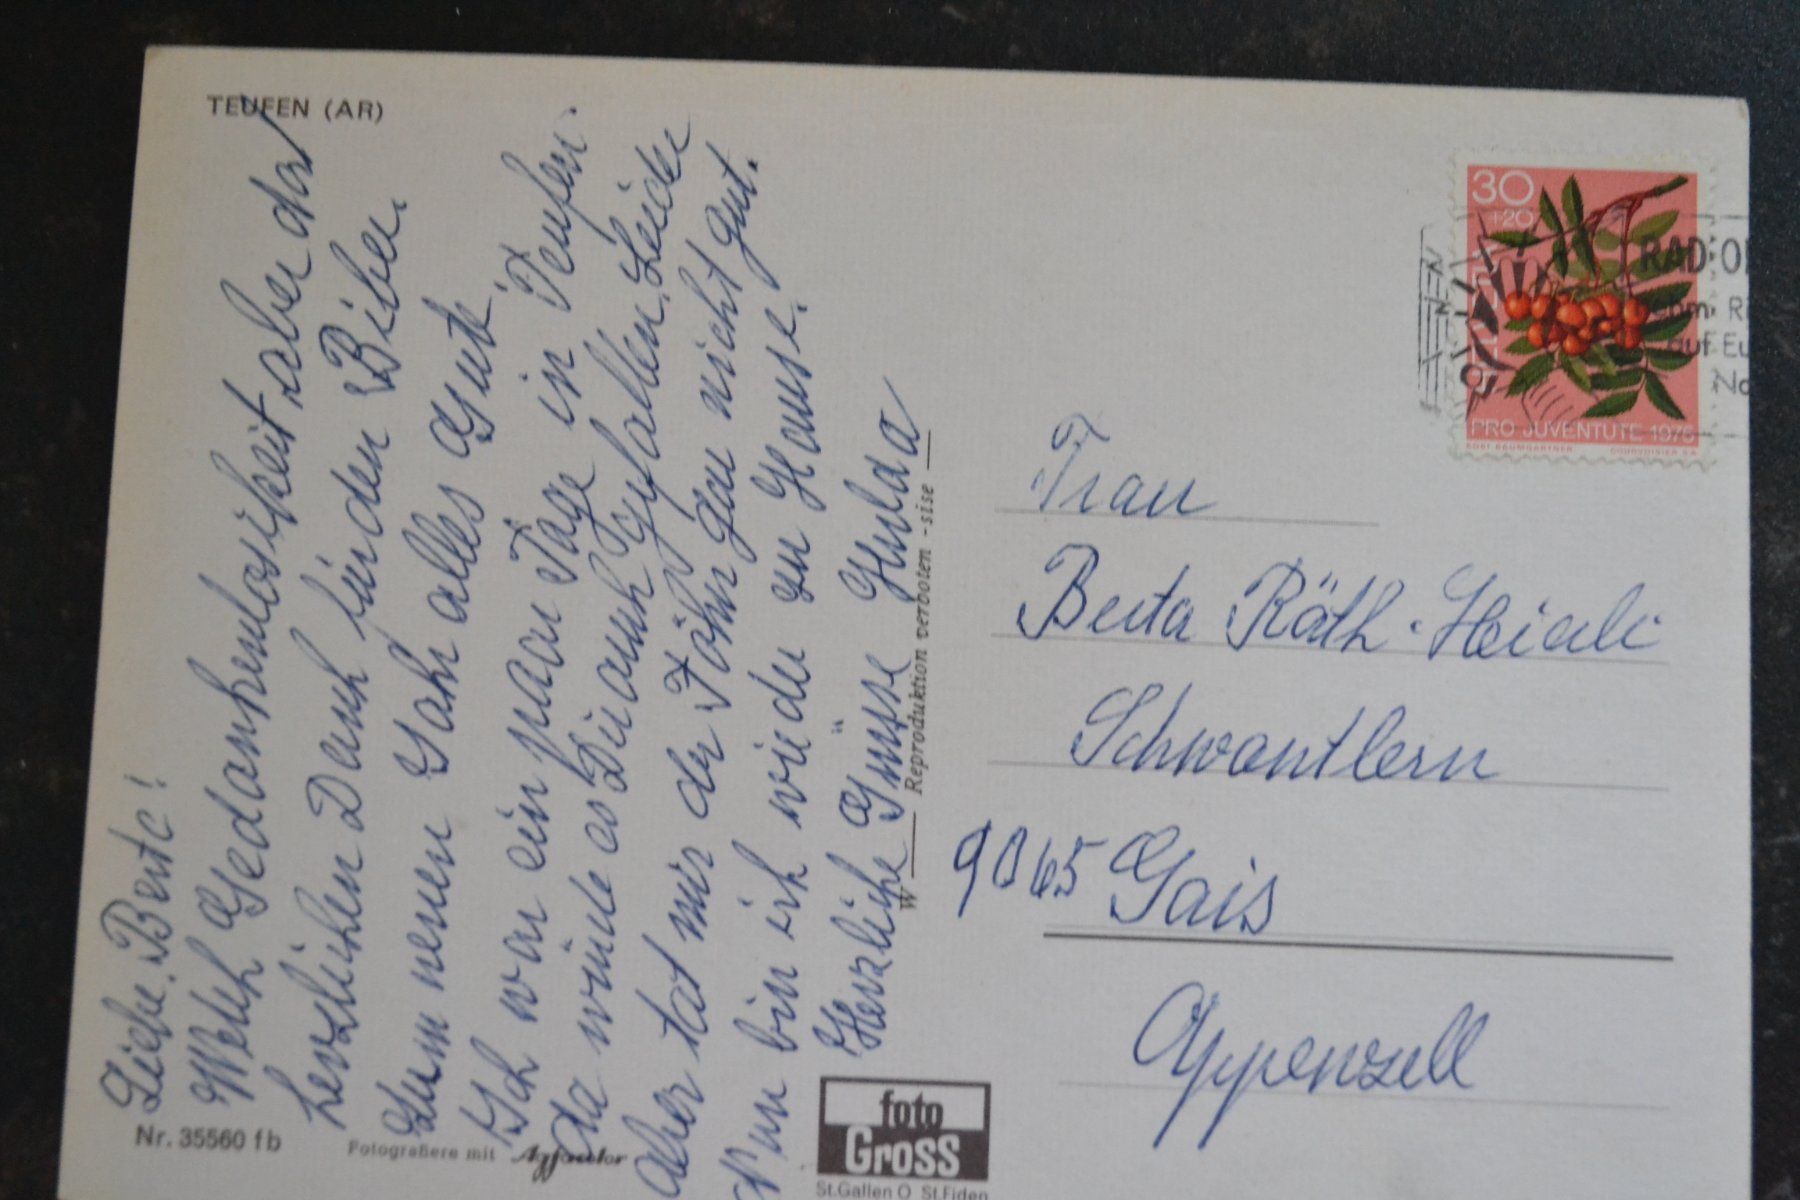 TEUFEN (AR)
Liebe Berte!
Welch Gedankenlosikeit, aber doch
herzlichen Dank für den Biber.
Zum neuen Jahr alles Gute.
Ich war ein paar Tage in Teufen.
Da würde es Dir auch gefallen. Leider
aber tat mir der Föhn gar nicht gut.
Nun bin ich wieder zu Hause.
Herzliche Grüsse Hulda
W Reproduktion verboten - sise
Nr. 35560 fb
Fotografiere mit Agfacolor
foto
Gross
St.Gallen O St.Fiden
30
+20
HELVETIA
PRO JUVENTUTE 1975
COURVOISIER S.A.
RADIO
auf Eu
Frau
Berta Räth-Heierli
Schwantlern
9065 Gais
Appenzell